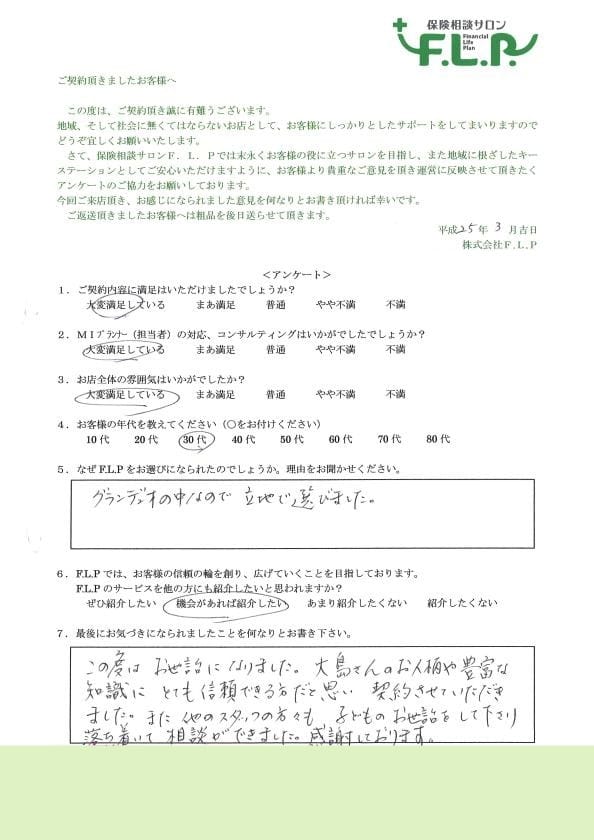 保険相談サロン
F.L.P.
Financial
Life
Plan
ご契約頂きましたお客様へ
この度は、ご契約頂き誠に有難うございます。
地域、そして社会に無くてはならないお店として、お客様にしっかりとしたサポートをしてまいりますので
どうぞ宜しくお願いいたします。
さて、保険相談サロンF．L．Pでは末永くお客様の役に立つサロンを目指し、また地域に根ざしたキー
ステーションとしてご安心いただけますように、お客様より貴重なご意見を頂き運営に反映させて頂きたく
アンケートのご協力をお願いしております。
今回ご来店頂き、お感じになられました意見を何なりとお書き頂ければ幸いです。
ご返送頂きましたお客様へは粗品を後日送らせて頂きます。
平成25年 3月吉日
株式会社F.L.P
＜アンケート＞
１．ご契約内容に満足はいただけましたでしょうか？
大変満足している　まあ満足　普通　やや不満　不満
２．ＭＩプランナー（担当者）の対応、コンサルティングはいかがでしたでしょうか？
大変満足している　まあ満足　普通　やや不満　不満
３．お店全体の雰囲気はいかがでしたか？
大変満足している　まあ満足　普通　やや不満　不満
４．お客様の年代を教えてください（○をお付けください）
10代　20代　30代　40代　50代　60代　70代　80代
５．なぜF.L.Pをお選びになられたのでしょうか。理由をお聞かせください。
グランデュオの中なので 立地で選びました。
６．F.L.Pでは、お客様の信頼の輪を創り、広げていくことを目指しております。
F.L.Pのサービスを他の方にも紹介したいと思われますか？
ぜひ紹介したい　機会があれば紹介したい　あまり紹介したくない　紹介したくない
７．最後にお気づきになられましたことを何なりとお書き下さい。
この度は お世話になりました。大島さんのお人柄や豊富な
知識に とても信頼できる方だと思い 契約させていただき
ました。また 他のスタッフの方々も 子どものお世話をして下さり
落ち着いて 相談ができました。感謝しております。